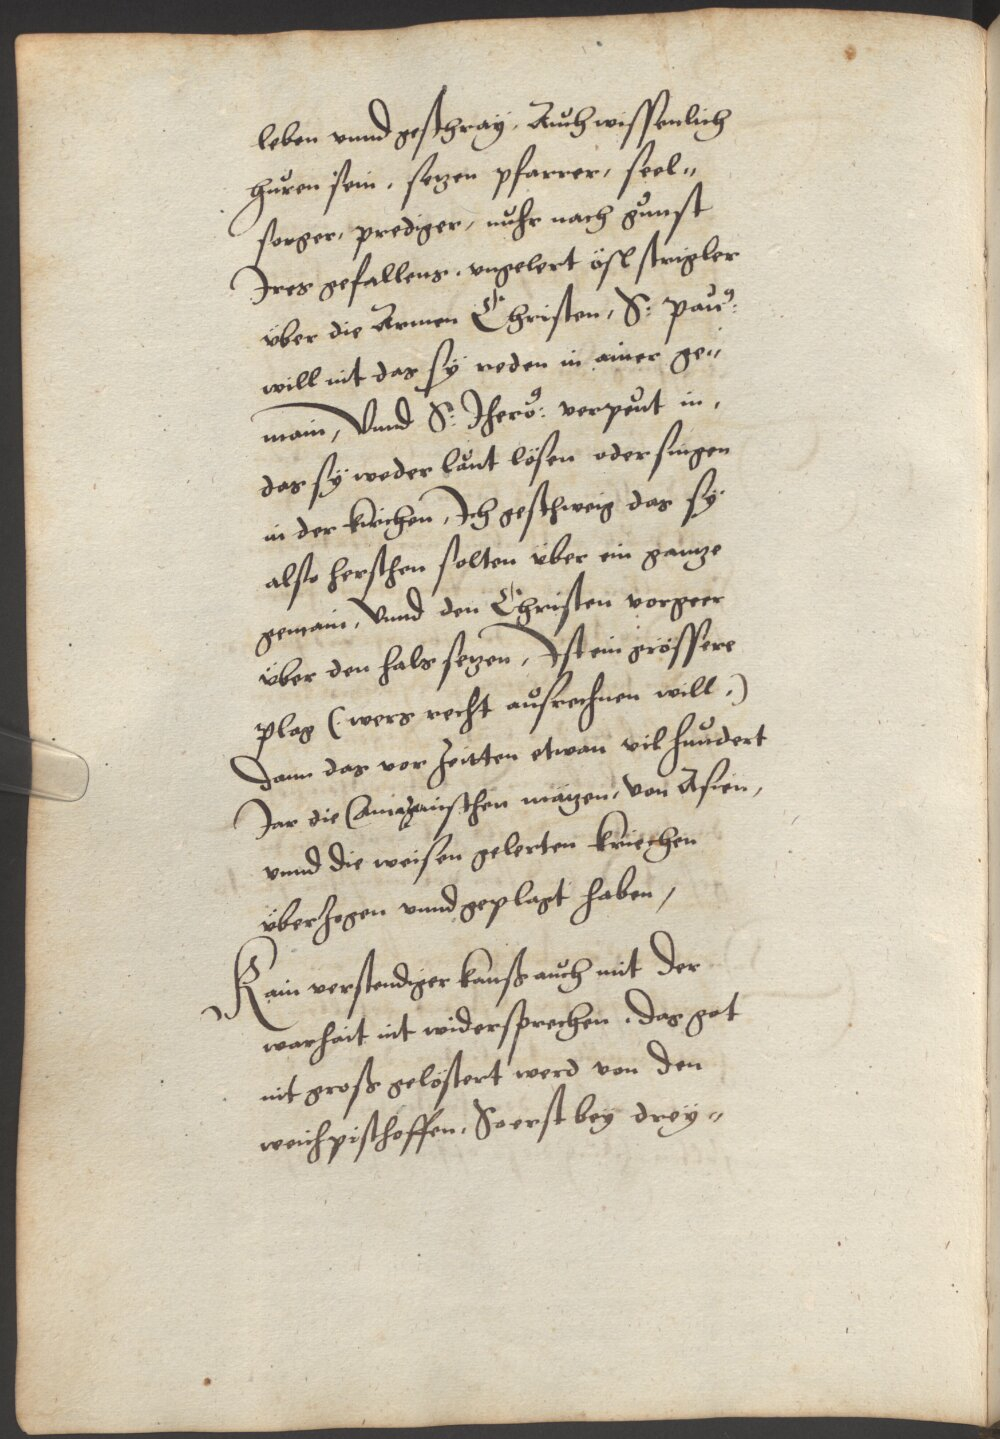 leben vnnd geschray, Auch wissenlich
huren sein, setzen pfarrer, seel„
sorger, prediger, nuhr nach gunst
Ires gefallens, vngelert ösl strigler
über die Armen Christen, S: pauꝰ:
will nit das sÿ reden in ainer ge„
main, Vnnd S: Jheroꝰ: verpeut in,
das sÿ weder laut lösen oder singen
in der kirchen, Ich geschweig das sÿ
also herschen solten über ein gantze
gemain, Vnnd den Christen vorgeer
über den hals setzen, Ist ein grössere
plag (: wers recht ausrechnen will :)
dann das vor Zeitten etwan vil hundert
Jar die mätzen, von Asien,
vnnd die weisen gelerten kriechen
überzogen vnnd geplagt haben,
Kain verstendiger kanß auch mit der
warhait nit widersprechen, das got
nit groß gelöstert werd von den
weichpischoffen, So erst bey drey„